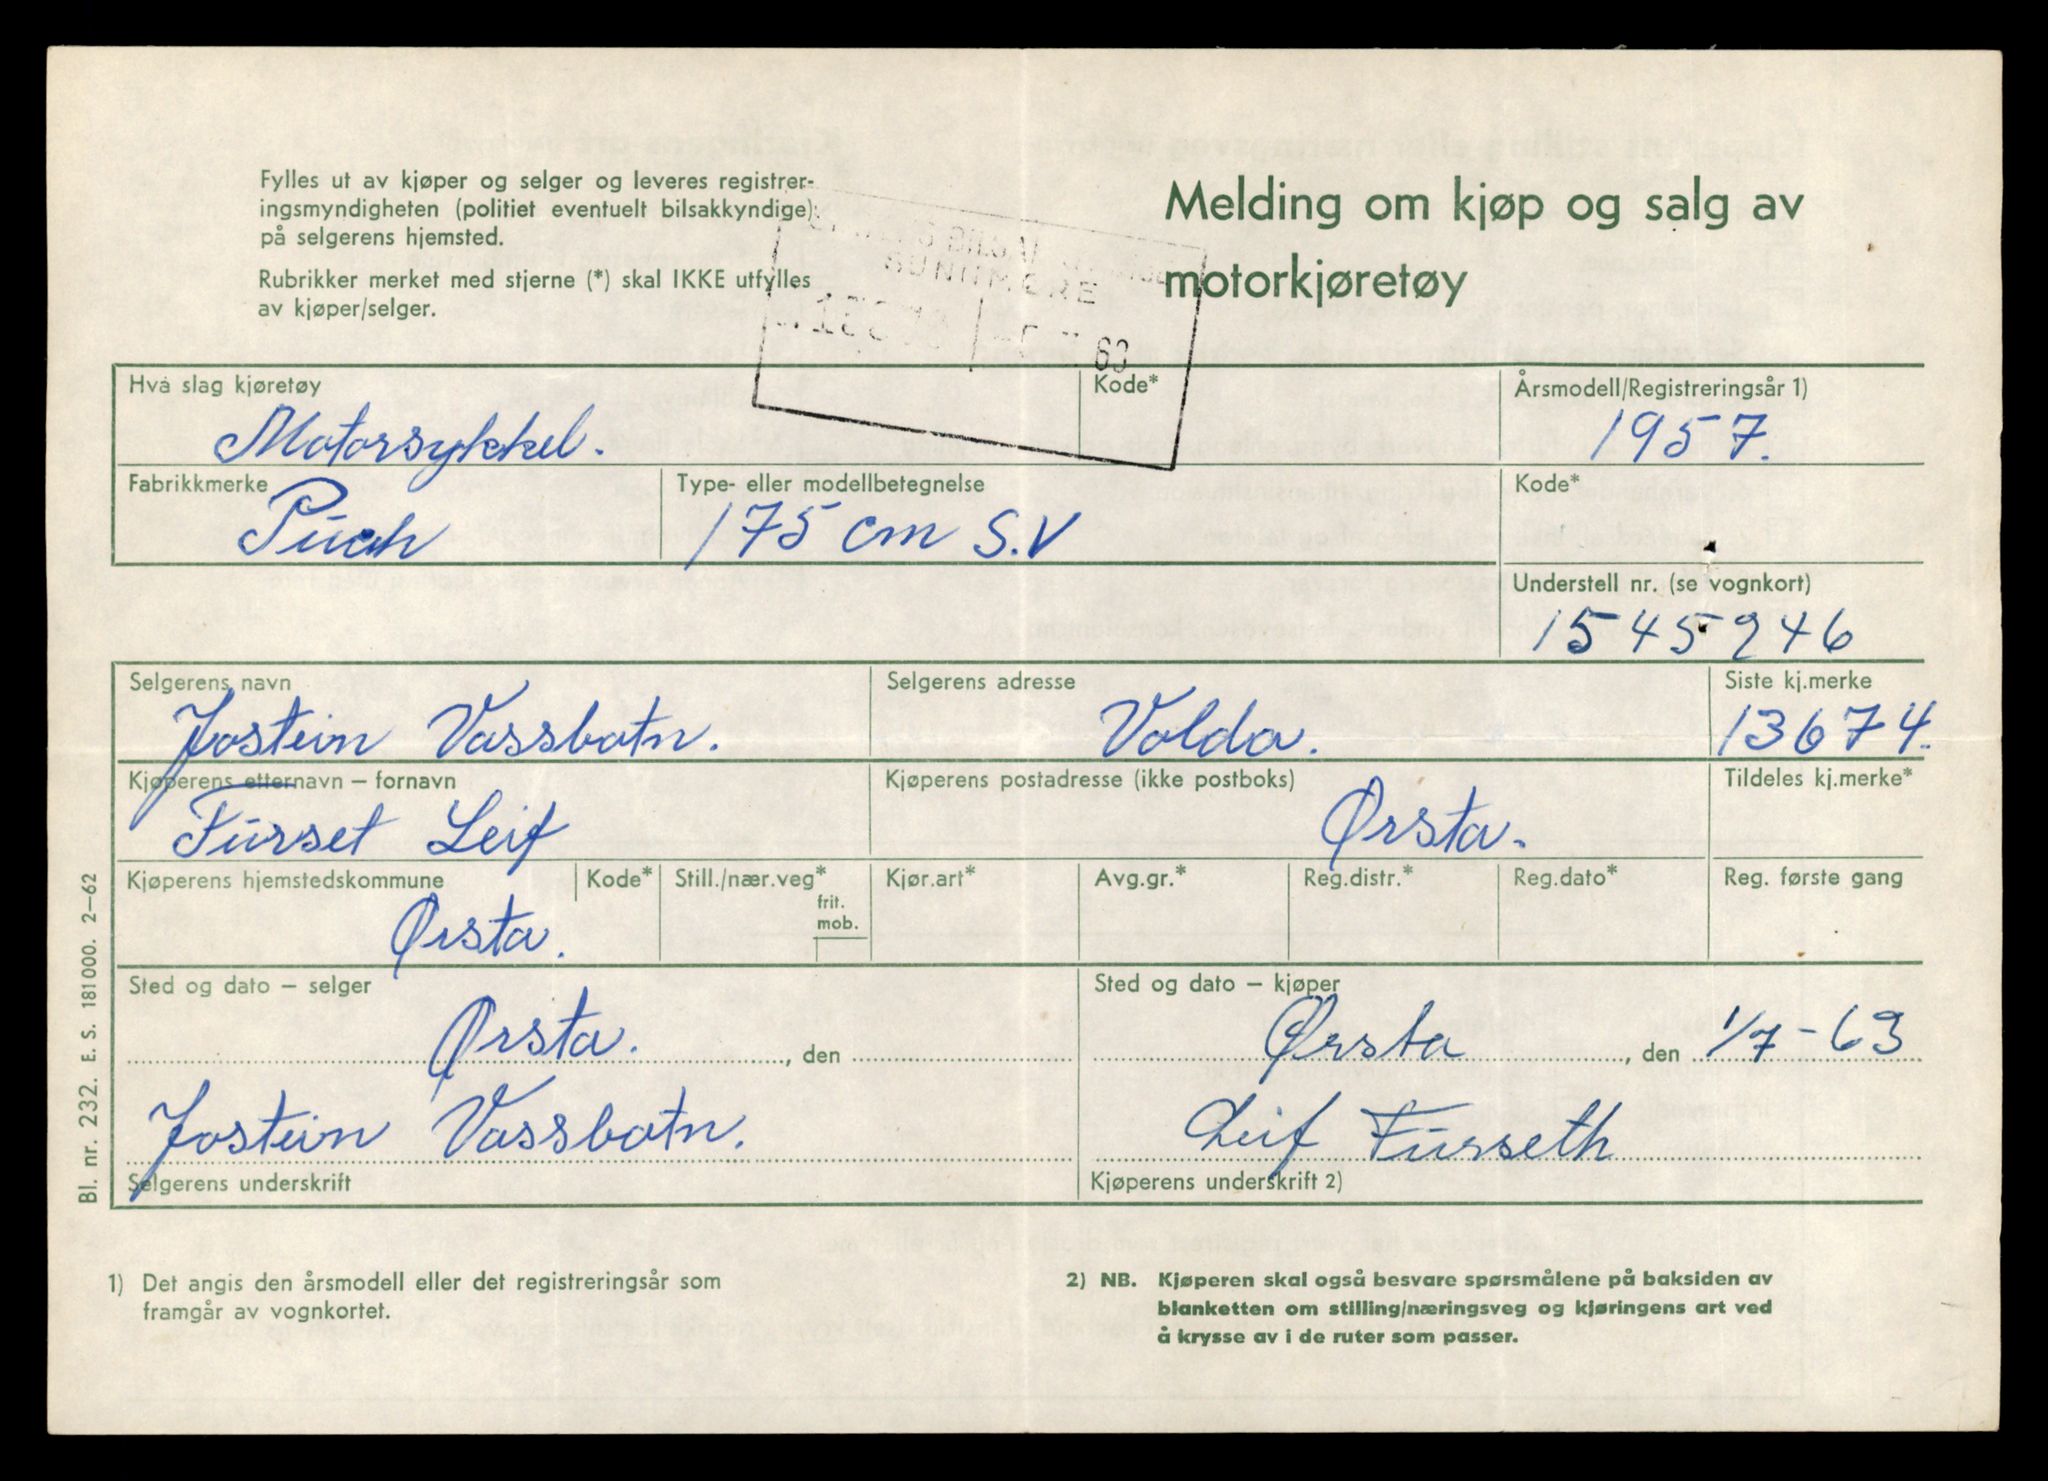 Fylles ut av kjøper og selger og leveres registrer-
ingsmyndigheten (politiet eventuelt bilsakkyndige)
på selgerens hjemsted.
Rubrikker merket med stjerne (*) skal IKKE utfylles
av kjøper/selger.
Melding om kjøp og salg av
motorkjøretøy
63
Hva slag kjøretøy
Kode*
Årsmodell/Registreringsår 1)
Motorsykkel.
1957.
Fabrikkmerke
Type- eller modellbetegnelse
Kode*
Puch
175 cm S.V
Understell nr. (se vognkort)
1545246
Selgerens navn
Selgerens adresse
Siste kj.merke
Jostein Vassbotn.
Volda.
13674.
Kjøperens etternavn – fornavn
Kjøperens postadresse (ikke postboks)
Tildeles kj.merke*
Furset Leif
Ørsta.
Kjøperens hjemstedskommune
Kode*
Still./nær.veg*
frit.
mob.
Kjør.art*
Avg.gr.*
Reg.distr.*
Reg.dato*
Reg. første gang
Ørsta.
Sted og dato – selger
Sted og dato – kjøper
Ørsta. , den
Ørsta , den 1/7-63
Jostein Vassbotn.
Leif Furseth
Selgerens underskrift
Kjøperens underskrift 2)
Bl. nr. 232. E. S. 181000. 2–62
1) Det angis den årsmodell eller det registreringsår som
framgår av vognkortet.
2) NB. Kjøperen skal også besvare spørsmålene på baksiden av
blanketten om stilling/næringsveg og kjøringens art ved
å krysse av i de ruter som passer.